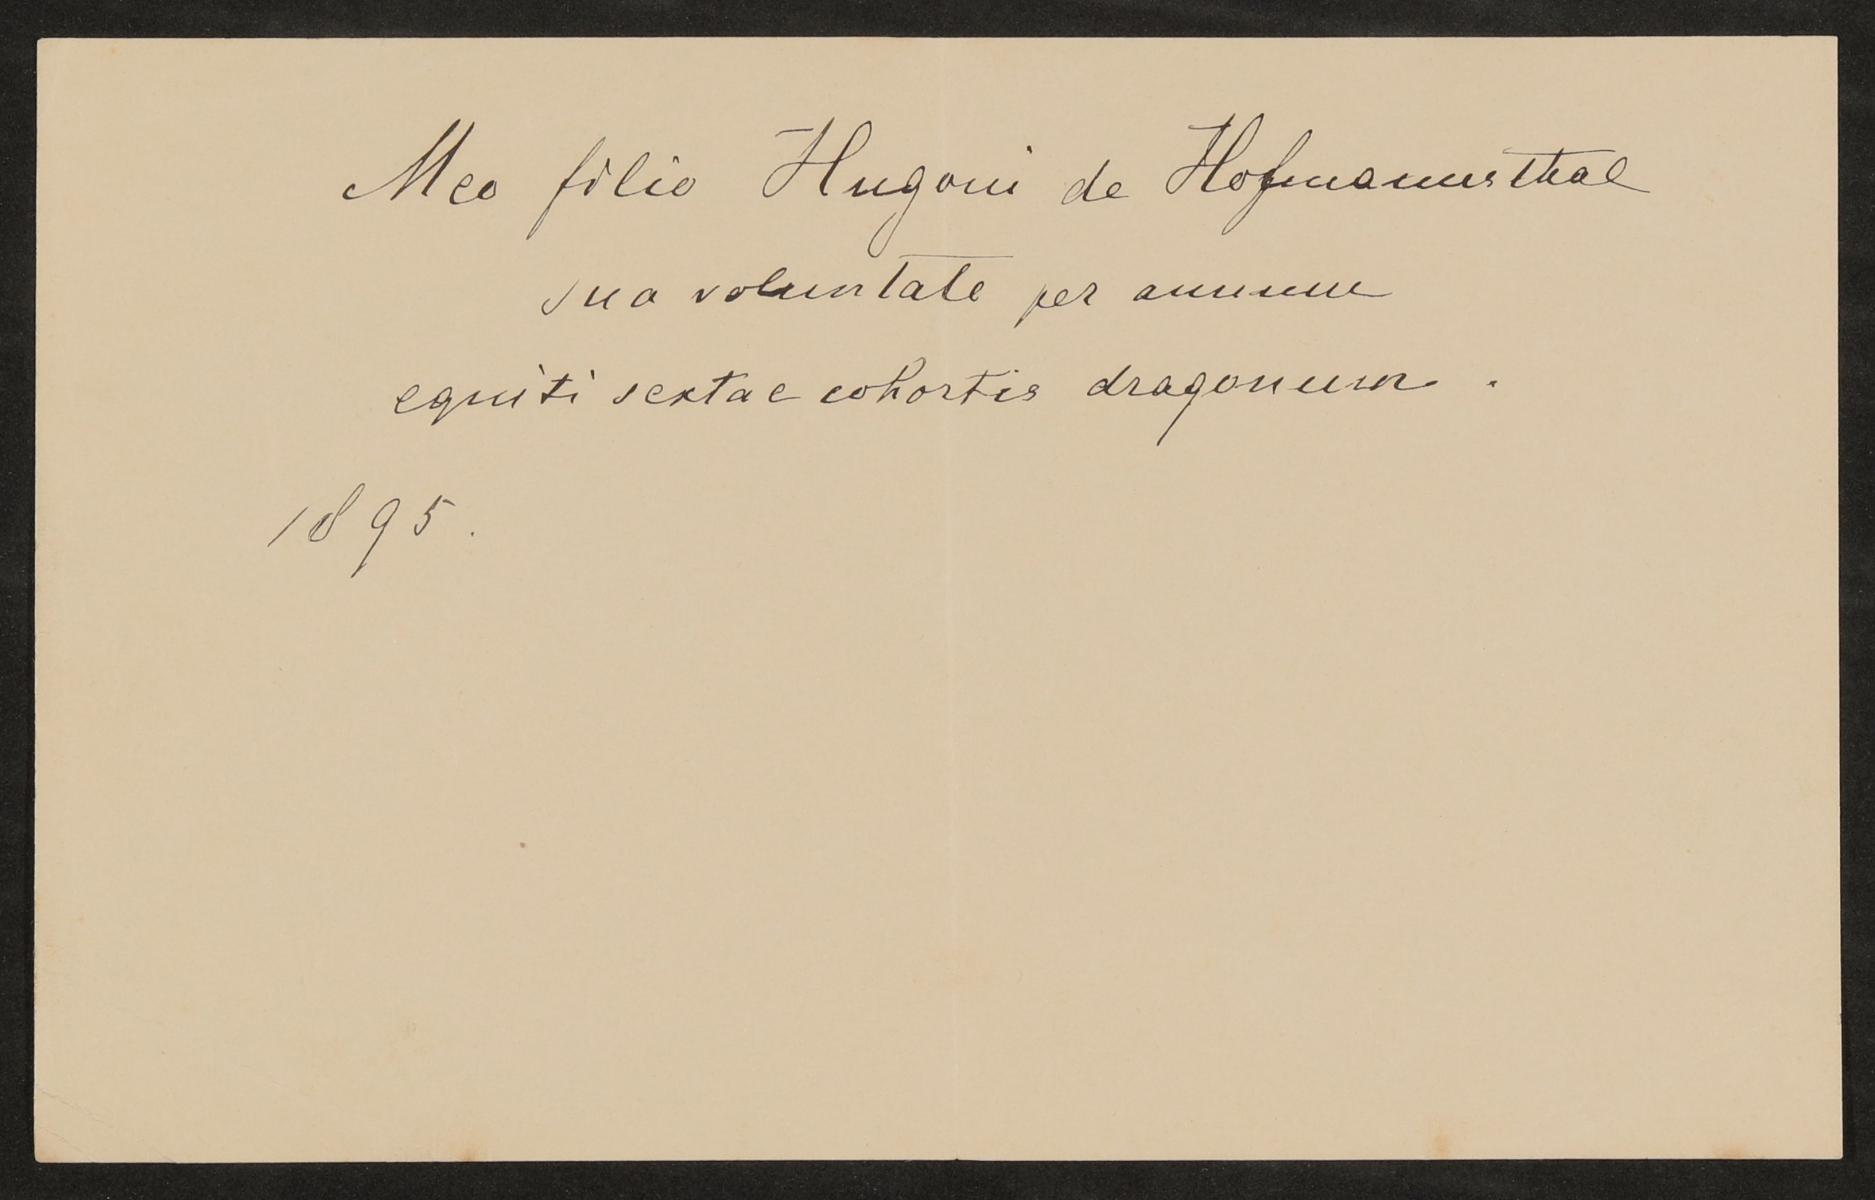 Meo filio Hugoni de Hofmannsthal
sua voluntate per annum
equiti sextae cohortis dragonum.
1895.